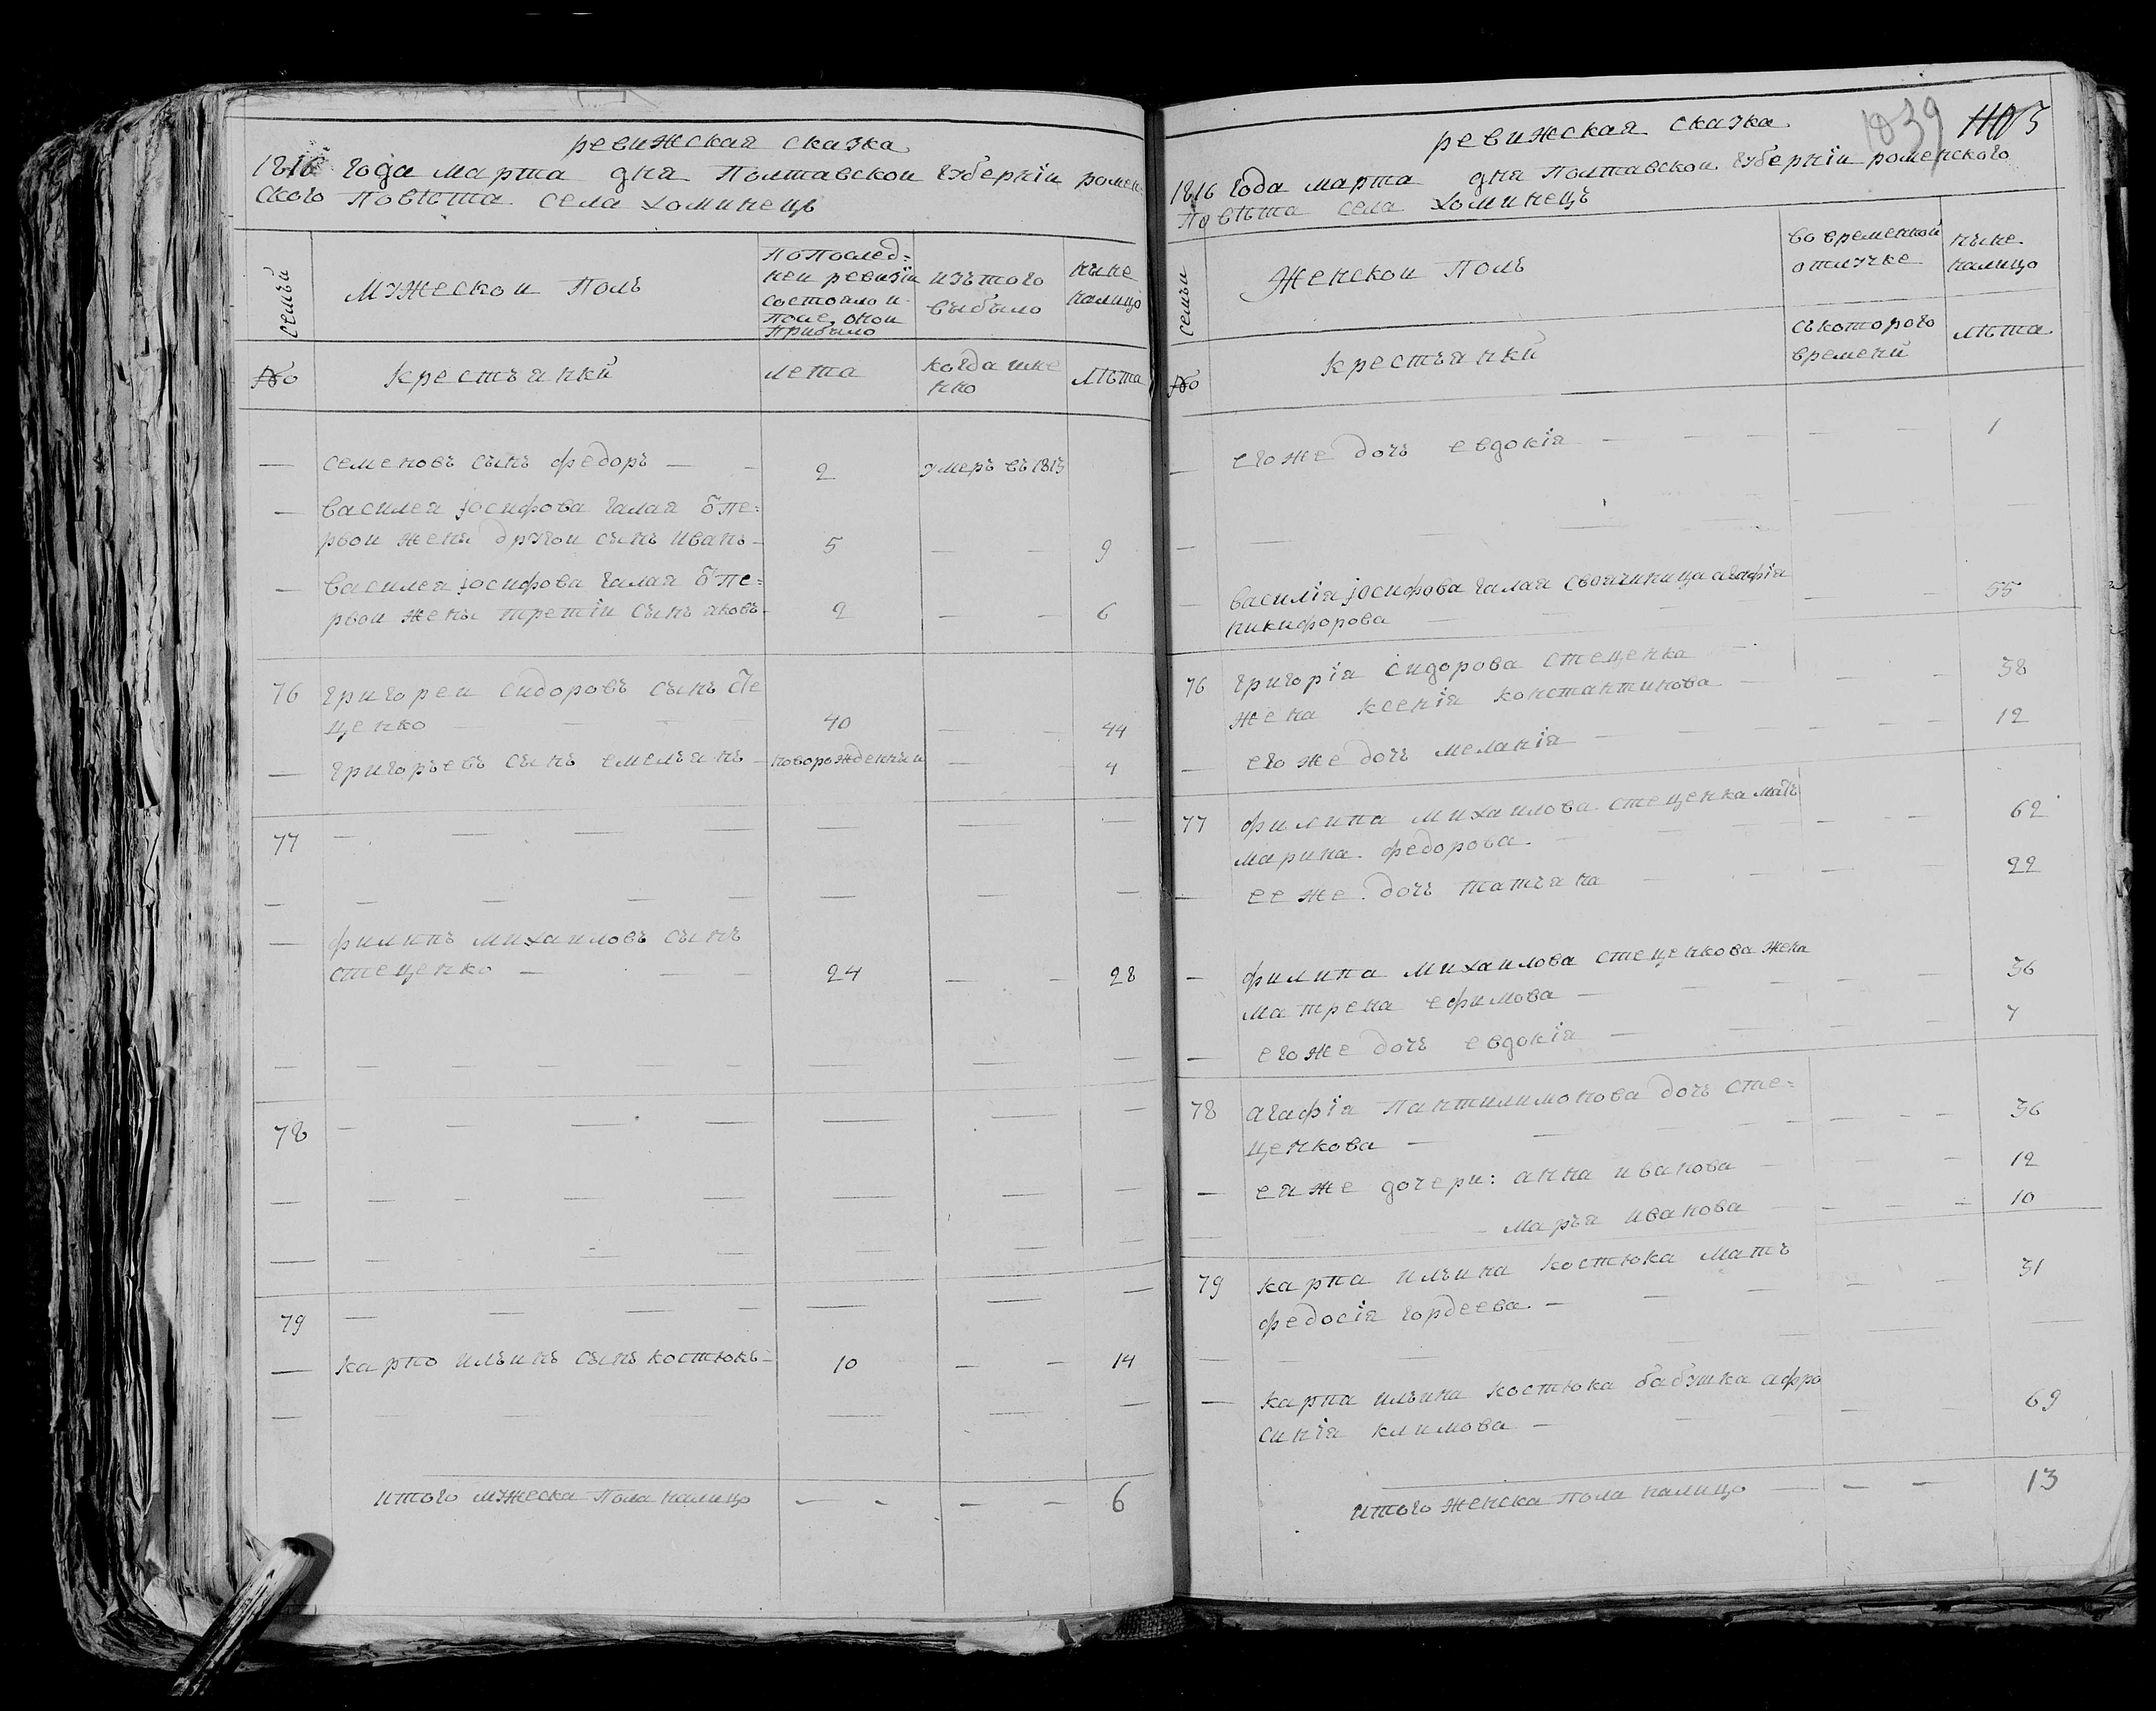 ревижская сказка
1816 года марта дня Полтавской губернiи ромен
ского Повѣта села хоминецъ
семьи
Мужеской Полъ
По послед:
ней ревизiи
состояло и
После оной
Прибыло
изътого
выбыло
ныне
налицо
№
Крестьянки
лета
когда име
нно
Лѣта
— семеновъ сынъ федоръ — - 2 умеръ въ 1813
— василея јосифова галая ѿ пе:
рвой жены другой сынъ иванъ - 5 — — 9
— василея јосифова галая ѿ пе:
рвой жены третiй сынъ яковъ - 2 — — 6
76 григорей сидоровъ сынъ сте
ценко — — — 40 — — 44
— григорьевъ сынъ емельянъ - новорожденный — 4
77 — — — — — — —
— — — — — — — —
— филипъ михайловъ сынъ
стеценко — — — 24 — — 28
— — — — — — — —
78 — — — — — — —
— — — — — — — —
— — — — — — — —
79 — — — — — — —
— карпо ильинъ сынъ костюкъ - 10 — — 14
— — — — —
итого мужеска Пола налицо — - — — 6
1039 1103
ревижская сказка
1816 года марта дня Полтавской губернiи роменского
Повѣта села хоминецъ
семьи
Женской Полъ
во временной
отлучке
ныне
налицо
№
крестьянки
съкоторого
времени
лѣта
— его же дочь евдокiя — — — — — 1
— — — — — —
— василiя јосифова галая своячиница агафiя
никифорова — — — — 55
76 григорiя сидорова стеценка
жена ксенiя константинова — — - 38
— его же дочь меланiя — — — — 12
77 филипа михайлова стеценка мать
марина федорова — — - - 62
— ее же дочь татьяна — — — — 22
— филипа михайлова стеценкова жена
матрена ефимова — — — — 36
— его же дочь евдокiя — — — — 7
78 агафiя Пантилимонова дочь сте:
ценкова — — — — - - 36
— ея же дочери: анна иванова — — — 12
— — марья иванова — — — 10
79 карпа ильина костюка мать
федосiя гордеева — — — — — 31
— — — — — —
— карпа ильина костюка бабушка афро
синiя климова — — — — 69
итого женска Пола налицо — — - 13